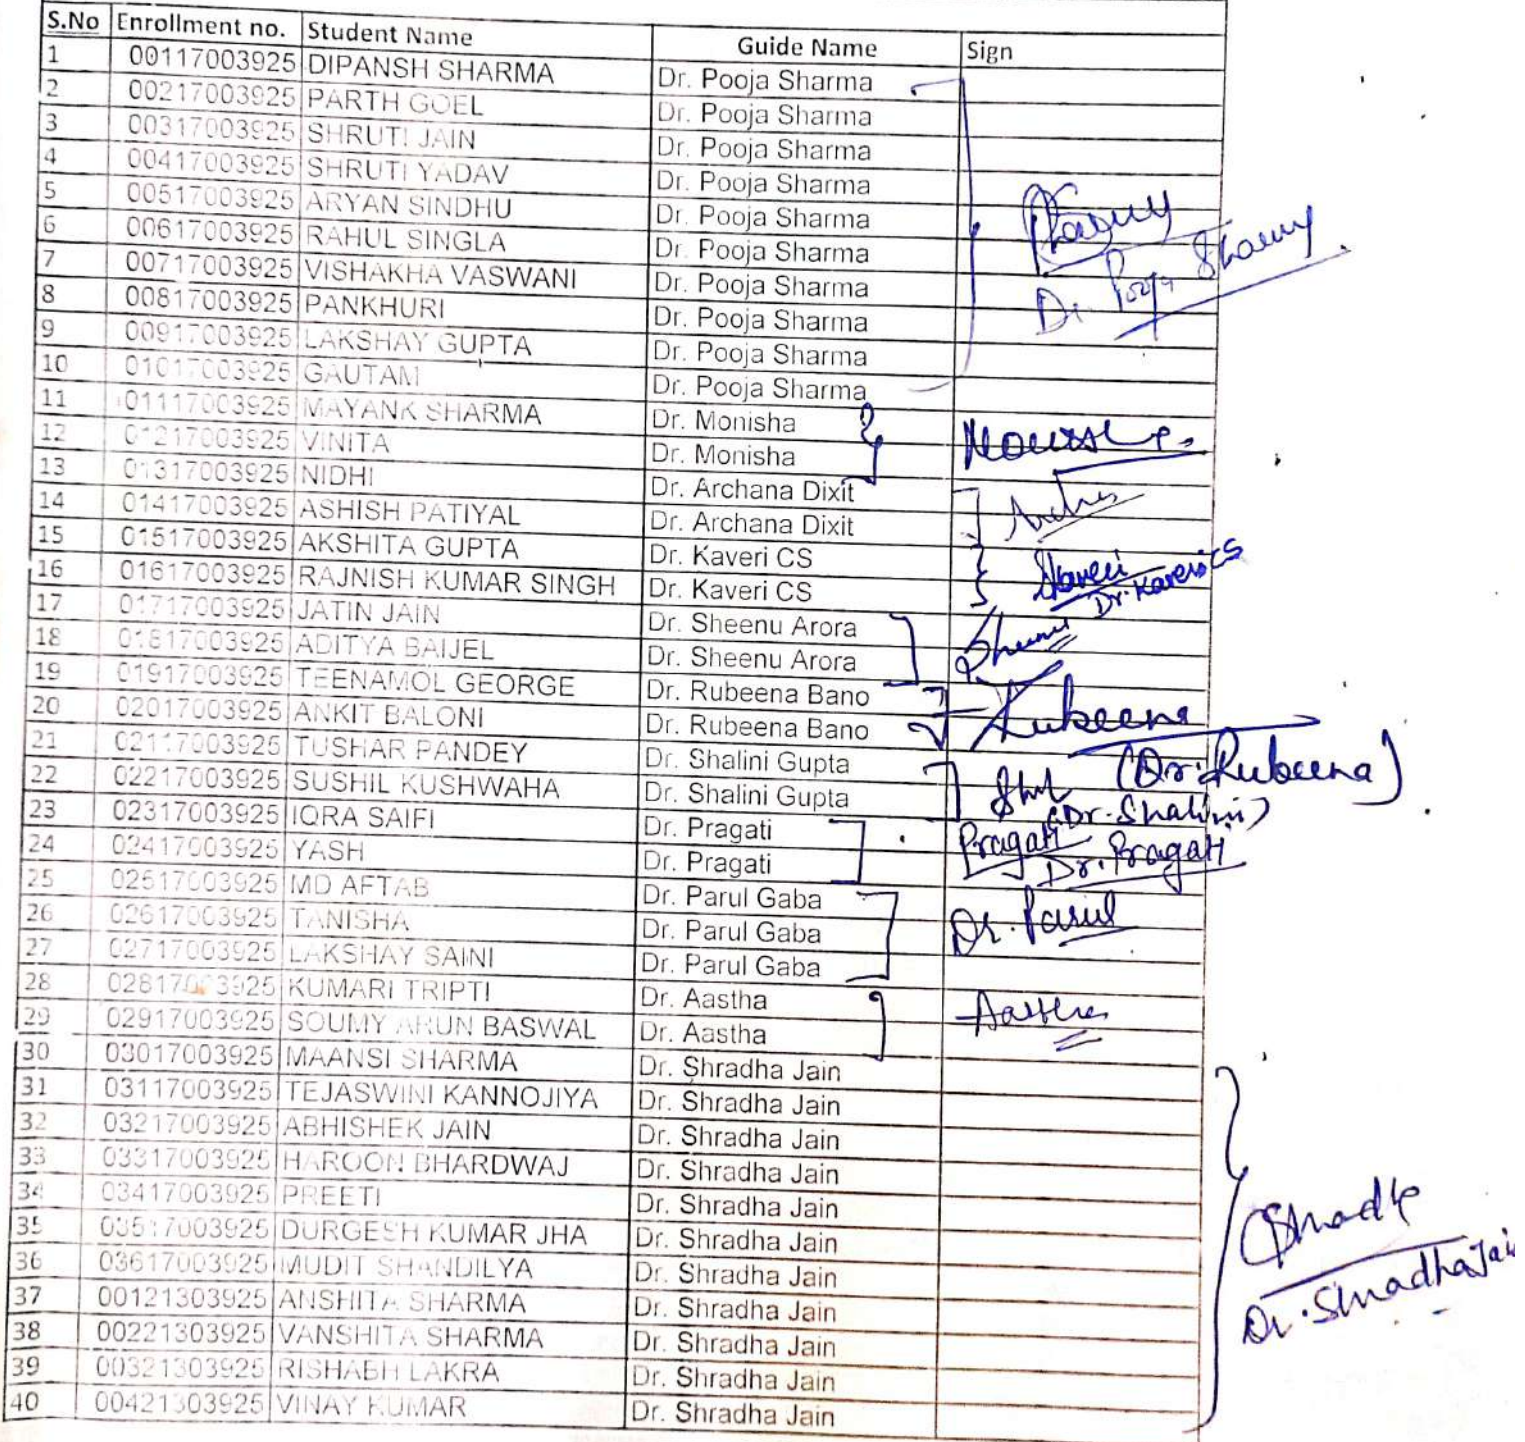 S.No Enrollment no. Student Name Guide Name Sign
1 00117003925 DIPANSH SHARMA Dr. Pooja Sharma
2 00217003925 PARTH GOEL Dr. Pooja Sharma
3 00317003925 SHRUTI JAIN Dr. Pooja Sharma
4 00417003925 SHRUTI YADAV Dr. Pooja Sharma
5 00517003925 ARYAN SINDHU Dr. Pooja Sharma
6 00617003925 RAHUL SINGLA Dr. Pooja Sharma
7 00717003925 VISHAKHA VASWANI Dr. Pooja Sharma
8 00817003925 PANKHURI Dr. Pooja Sharma
Dr. Pooja Sharma
9 00917003925 LAKSHAY GUPTA Dr. Pooja Sharma
10 01017003925 GAUTAM Dr. Pooja Sharma
11 01117003925 MAYANK SHARMA Dr. Monisha
12 01217003925 VINITA Dr. Monisha
13 01317003925 NIDHI Dr. Archana Dixit
14 01417003925 ASHISH PATIYAL Dr. Archana Dixit
15 01517003925 AKSHITA GUPTA Dr. Kaveri CS Kaveri
16 01617003925 RAJNISH KUMAR SINGH Dr. Kaveri CS Dr. Kaveri CS
17 01717003925 JATIN JAIN Dr. Sheenu Arora Sheenu
18 01817003925 ADITYA BAIJEL Dr. Sheenu Arora
19 01917003925 TEENAMOL GEORGE Dr. Rubeena Bano Rubeena
20 02017003925 ANKIT BALONI Dr. Rubeena Bano (Dr. Rubeena)
21 02117003925 TUSHAR PANDEY Dr. Shalini Gupta
22 02217003925 SUSHIL KUSHWAHA Dr. Shalini Gupta (Dr. Shalini)
23 02317003925 IQRA SAIFI Dr. Pragati Pragati
24 02417003925 YASH Dr. Pragati Dr. Pragati
25 02517003925 MD AFTAB Dr. Parul Gaba
26 02617003925 TANISHA Dr. Parul Gaba Dr. Parul
27 02717003925 LAKSHAY SAINI Dr. Parul Gaba
28 02817003925 KUMARI TRIPTI Dr. Aastha Aastha
29 02917003925 SOUMY ARUN BASWAL Dr. Aastha
30 03017003925 MAANSI SHARMA Dr. Shradha Jain
31 03117003925 TEJASWINI KANNOJIYA Dr. Shradha Jain
32 03217003925 ABHISHEK JAIN Dr. Shradha Jain
33 03317003925 HAROON BHARDWAJ Dr. Shradha Jain
34 03417003925 PREETI Dr. Shradha Jain
35 03517003925 DURGESH KUMAR JHA Dr. Shradha Jain Shradha
36 03617003925 MUDIT SHANDILYA Dr. Shradha Jain Dr. Shradha Jain
37 00121303925 ANSHITA SHARMA Dr. Shradha Jain
38 00221303925 VANSHITA SHARMA Dr. Shradha Jain
39 00321303925 RISHABH LAKRA Dr. Shradha Jain
40 00421303925 VINAY KUMAR Dr. Shradha Jain